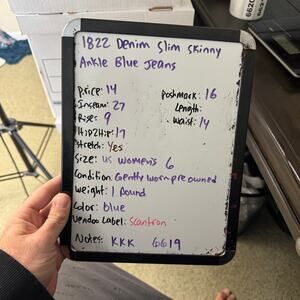 1822 Denim Slim Skinny
Ankle Blue Jeans
Price: 14
Poshmark: 16
Inseam: 27
Length:
Rise: 9
Waist: 14
Hip2Hip: 17
Stretch: Yes
Size: US Women's 6
Condition: Gently worn pre owned
Weight: 1 Pound
Color: blue
Vendoo Label: Scantron
Notes: KKK 6619